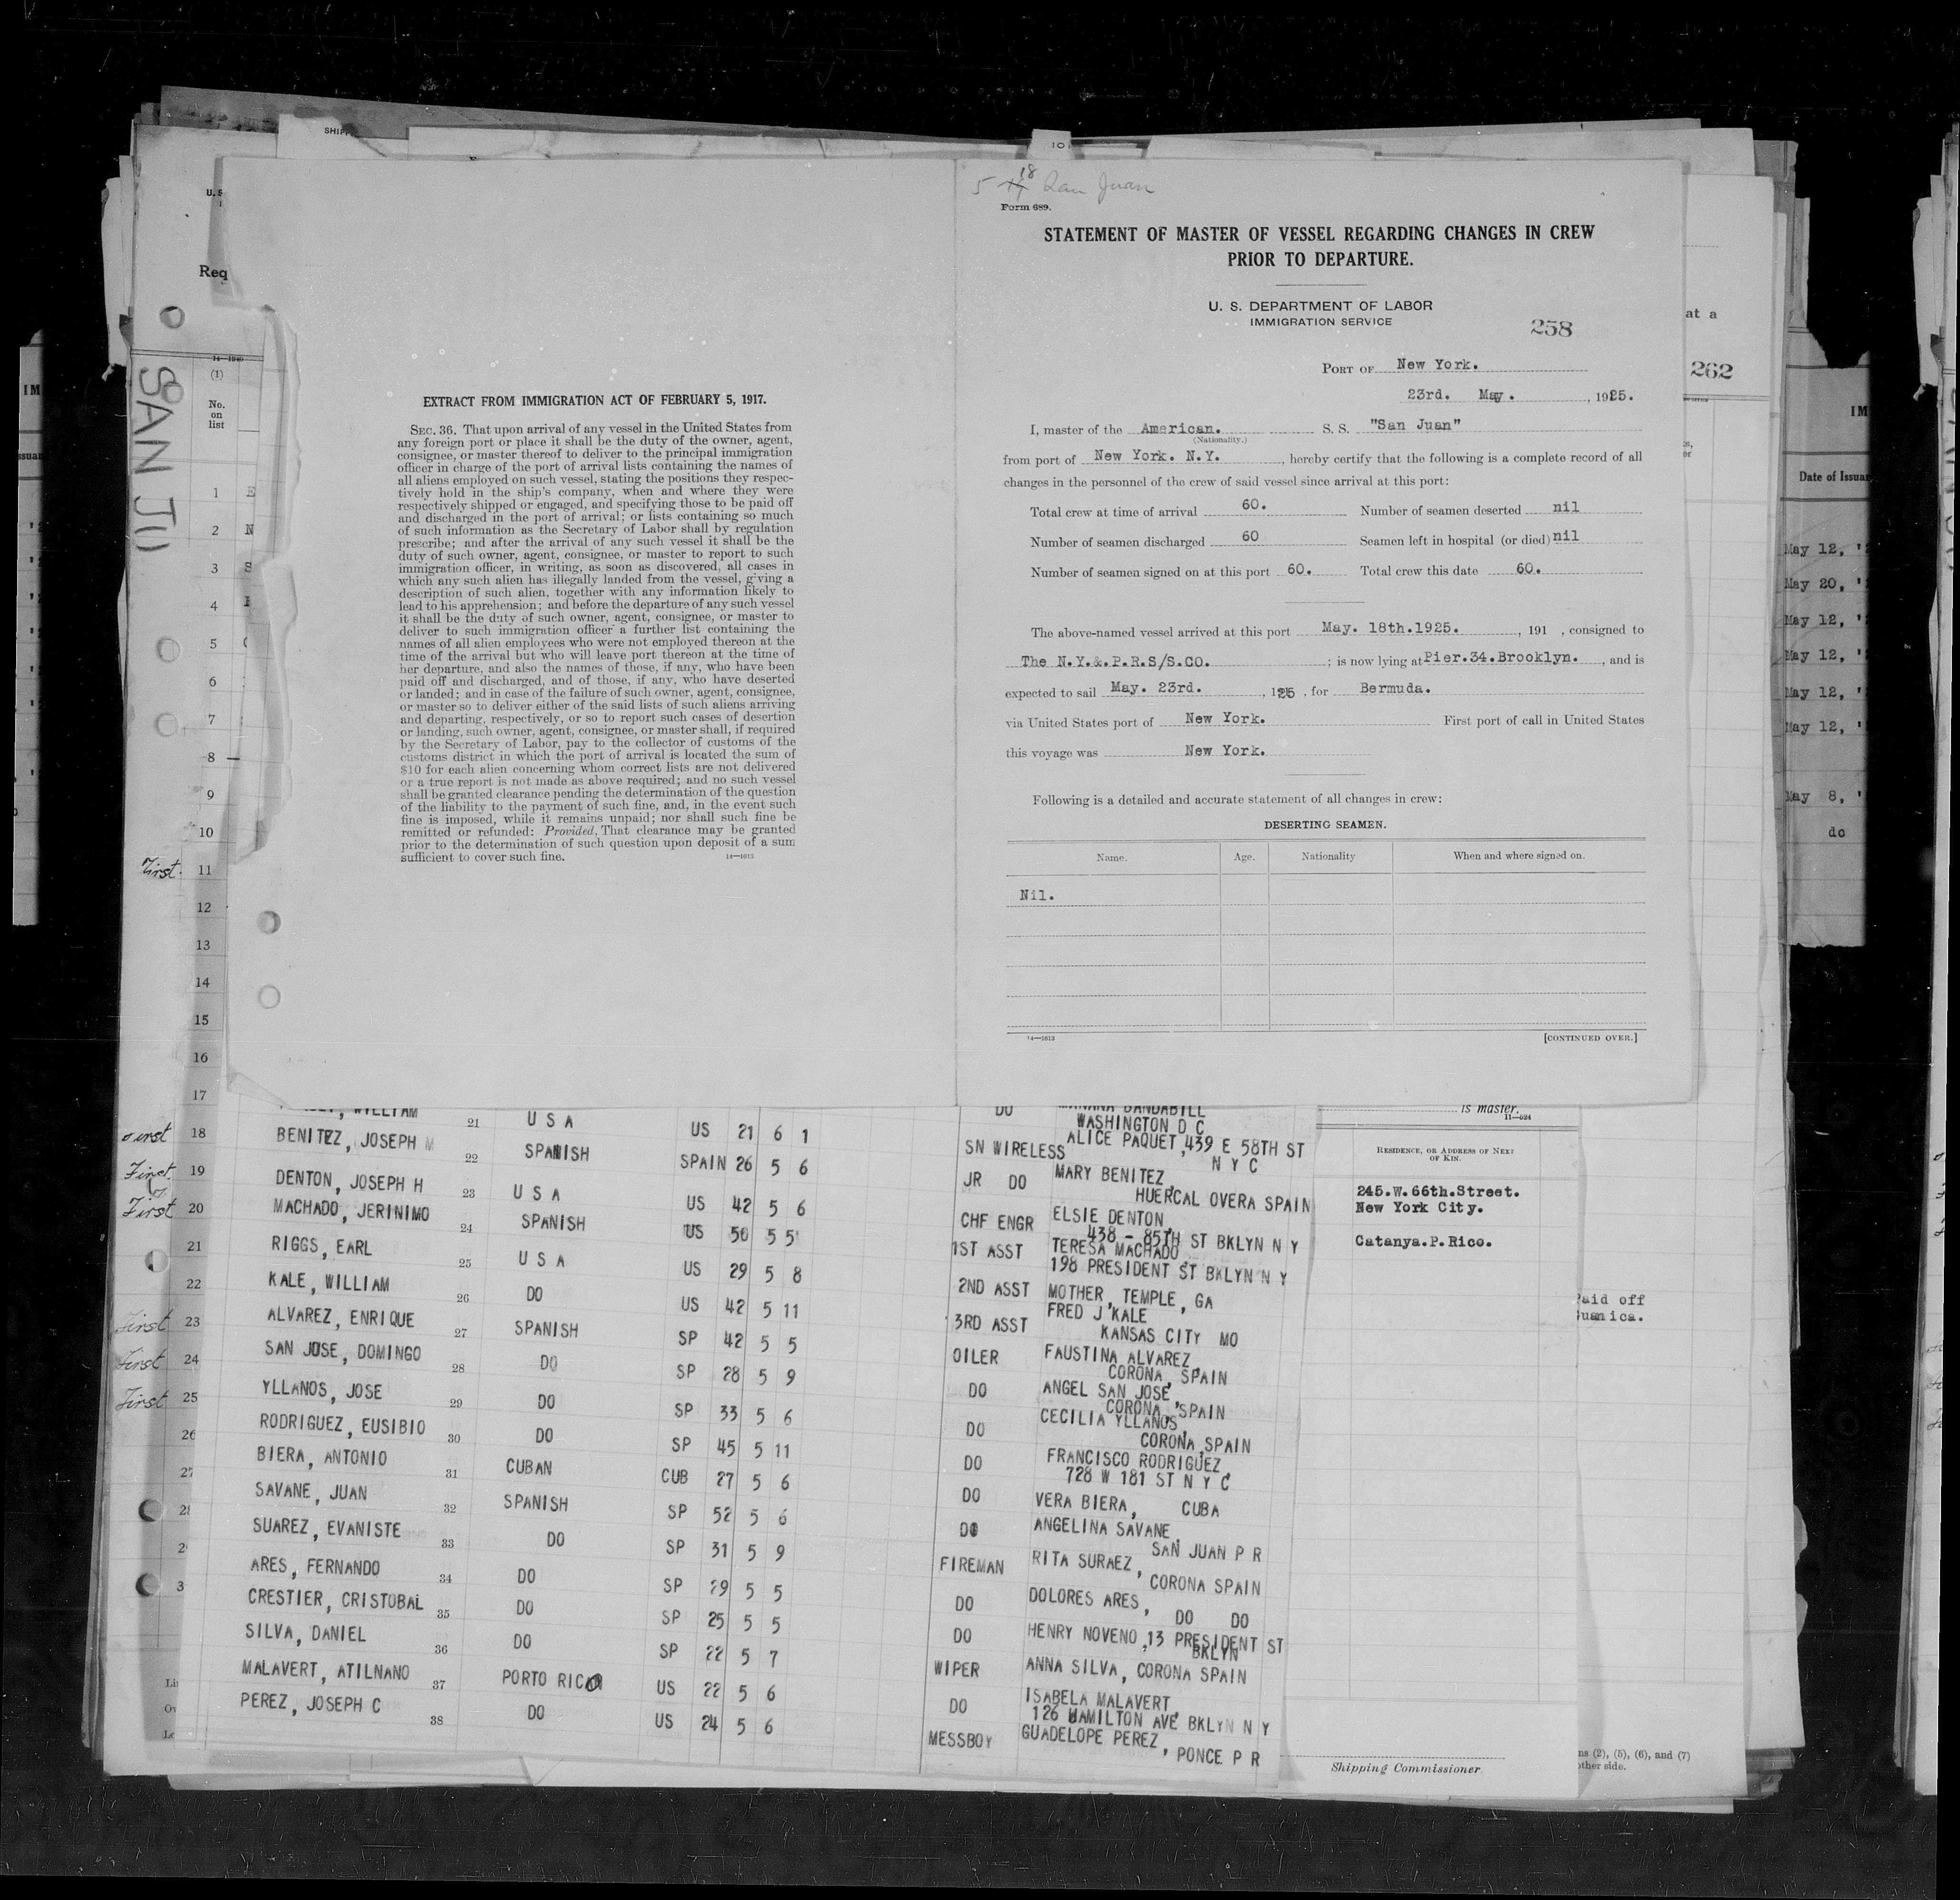 SHIPP
10
U. S
Req
14—1940
(1)
No.
on
list
SAN JU
1 E
2 N
3 S
4
5
6
7
8
9
10
First. 11
12
13
14
15
16
17
EXTRACT FROM IMMIGRATION ACT OF FEBRUARY 5, 1917.
SEC. 36. That upon arrival of any vessel in the United States from
any foreign port or place it shall be the duty of the owner, agent,
consignee, or master thereof to deliver to the principal immigration
officer in charge of the port of arrival lists containing the names of
all aliens employed on such vessel, stating the positions they respec-
tively hold in the ship's company, when and where they were
respectively shipped or engaged, and specifying those to be paid off
and discharged in the port of arrival; or lists containing so much
of such information as the Secretary of Labor shall by regulation
prescribe; and after the arrival of any such vessel it shall be the
duty of such owner, agent, consignee, or master to report to such
immigration officer, in writing, as soon as discovered, all cases in
which any such alien has illegally landed from the vessel, giving a
description of such alien, together with any information likely to
lead to his apprehension; and before the departure of any such vessel
it shall be the duty of such owner, agent, consignee, or master to
deliver to such immigration officer a further list containing the
names of all alien employees who were not employed thereon at the
time of the arrival but who will leave port thereon at the time of
her departure, and also the names of those, if any, who have been
paid off and discharged, and of those, if any, who have deserted
or landed; and in case of the failure of such owner, agent, consignee,
or master so to deliver either of the said lists of such aliens arriving
and departing, respectively, or so to report such cases of desertion
or landing, such owner, agent, consignee, or master shall, if required
by the Secretary of Labor, pay to the collector of customs of the
customs district in which the port of arrival is located the sum of
$10 for each alien concerning whom correct lists are not delivered
or a true report is not made as above required; and no such vessel
shall be granted clearance pending the determination of the question
of the liability to the payment of such fine, and, in the event such
fine is imposed, while it remains unpaid; nor shall such fine be
remitted or refunded: Provided, That clearance may be granted
prior to the determination of such question upon deposit of a sum
sufficient to cover such fine. 14—1613
5 18 San Juan
Form 689.
STATEMENT OF MASTER OF VESSEL REGARDING CHANGES IN CREW
PRIOR TO DEPARTURE.
U. S. DEPARTMENT OF LABOR
IMMIGRATION SERVICE
258
PORT OF New York.
23rd. May. , 1925.
I, master of the American. S. S. "San Juan"
(Nationality.)
from port of New York. N.Y. , hereby certify that the following is a complete record of all
changes in the personnel of the crew of said vessel since arrival at this port:
Total crew at time of arrival 60. Number of seamen deserted nil
Number of seamen discharged 60 Seamen left in hospital (or died) nil
Number of seamen signed on at this port 60. Total crew this date 60.
The above-named vessel arrived at this port May. 18th.1925. , 191 , consigned to
The N.Y.&.P.R.S/S.CO. ; is now lying at Pier.34.Brooklyn. , and is
expected to sail May. 23rd. , 1925 , for Bermuda.
via United States port of New York. First port of call in United States
this voyage was New York.
Following is a detailed and accurate statement of all changes in crew:
DESERTING SEAMEN.
Name. Age. Nationality When and where signed on.
Nil.
14—1613 [CONTINUED OVER.]
at a
262
IM
Date of Issuan
May 12, '2
May 20, '2
May 12, '
May 12, '
May 12, '
May 12, '
May 8, '
do
WILLIAM 21 U S A US 21 6 1 DO
WASHINGTON D C
First 18 BENITEZ, JOSEPH M 22 SPANISH SPAIN 26 5 6 SN WIRELESS ALICE PAQUET, 439 E 58TH ST
N Y C
First. 19 DENTON, JOSEPH H 23 U S A US 42 5 6 JR DO MARY BENITEZ,
HUERCAL OVERA SPAIN
First 20 MACHADO, JERINIMO 24 SPANISH US 50 5 5 CHF ENGR ELSIE DENTON,
438 - 85TH ST BKLYN N Y
21 RIGGS, EARL 25 U S A US 29 5 8 1ST ASST TERESA MACHADO
198 PRESIDENT ST BKLYN N Y
22 KALE, WILLIAM 26 DO US 42 5 11 2ND ASST MOTHER, TEMPLE, GA
First 23 ALVAREZ, ENRIQUE 27 SPANISH SP 42 5 5 3RD ASST FRED J KALE
KANSAS CITY MO
First 24 SAN JOSE, DOMINGO 28 DO SP 28 5 9 OILER FAUSTINA ALVAREZ,
CORONA, SPAIN
First 25 YLLANOS, JOSE 29 DO SP 33 5 6 DO ANGEL SAN JOSE,
CORONA, SPAIN
26 RODRIGUEZ, EUSIBIO 30 DO SP 45 5 11 DO CECILIA YLLANOS,
CORONA, SPAIN
27 BIERA, ANTONIO 31 CUBAN CUB 27 5 6 DO FRANCISCO RODRIGUEZ,
728 W 181 ST N Y C
28 SAVANE, JUAN 32 SPANISH SP 52 5 6 DO VERA BIERA, CUBA
2 SUAREZ, EVANISTE 33 DO SP 31 5 9 DO ANGELINA SAVANE,
SAN JUAN P R
3 ARES, FERNANDO 34 DO SP 29 5 5 FIREMAN RITA SURAEZ,
CORONA SPAIN
CRESTIER, CRISTOBAL 35 DO SP 25 5 5 DO DOLORES ARES, DO DO
SILVA, DANIEL 36 DO SP 22 5 7 DO HENRY NOVENO, 13 PRESIDENT ST
BKLYN
MALAVERT, ATILNANO 37 PORTO RICO US 22 5 6 WIPER ANNA SILVA, CORONA SPAIN
PEREZ, JOSEPH C 38 DO US 24 5 6 DO ISABELA MALAVERT,
126 HAMILTON AVE BKLYN N Y
MESSBOY GUADELOPE PEREZ, PONCE P R
is master.
11—524
RESIDENCE, OR ADDRESS OF NEXT
OF KIN.
245.W.66th.Street.
New York City.
Catanya.P.Rico.
Paid off
Guanica.
Shipping Commissioner.
ns (2), (5), (6), and (7)
other side.